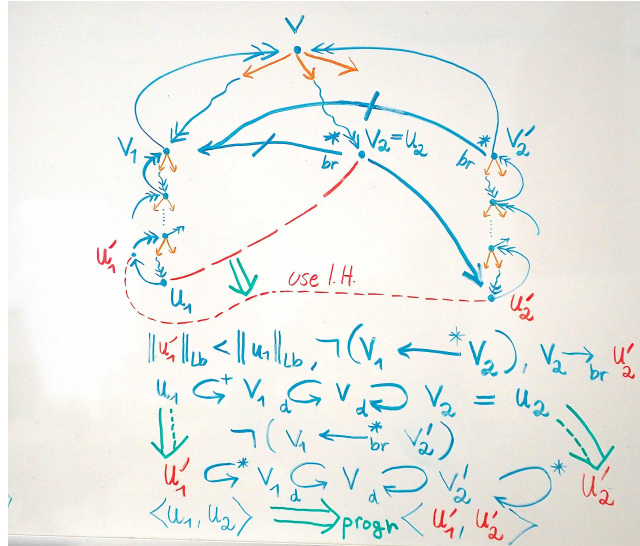 V
V₁
* br
V₂ = u₂
* br
V₂′
u₁′
u₁
use I.H.
u₂′
‖u₁′‖_Lb < ‖u₁‖_Lb, ¬(V₁ ⟵* V₂), V₂ →_br u₂′
u₁ ↺⁺ V₁ d↺ V d↻ V₂ = u₂
¬(V₁ ⟵*_br V₂′)
u₁′ ↺* V₁ d↺ V d↻ V₂′ ↻* u₂′
⟨u₁, u₂⟩ ⟹ progr ⟨u₁′, u₂′⟩